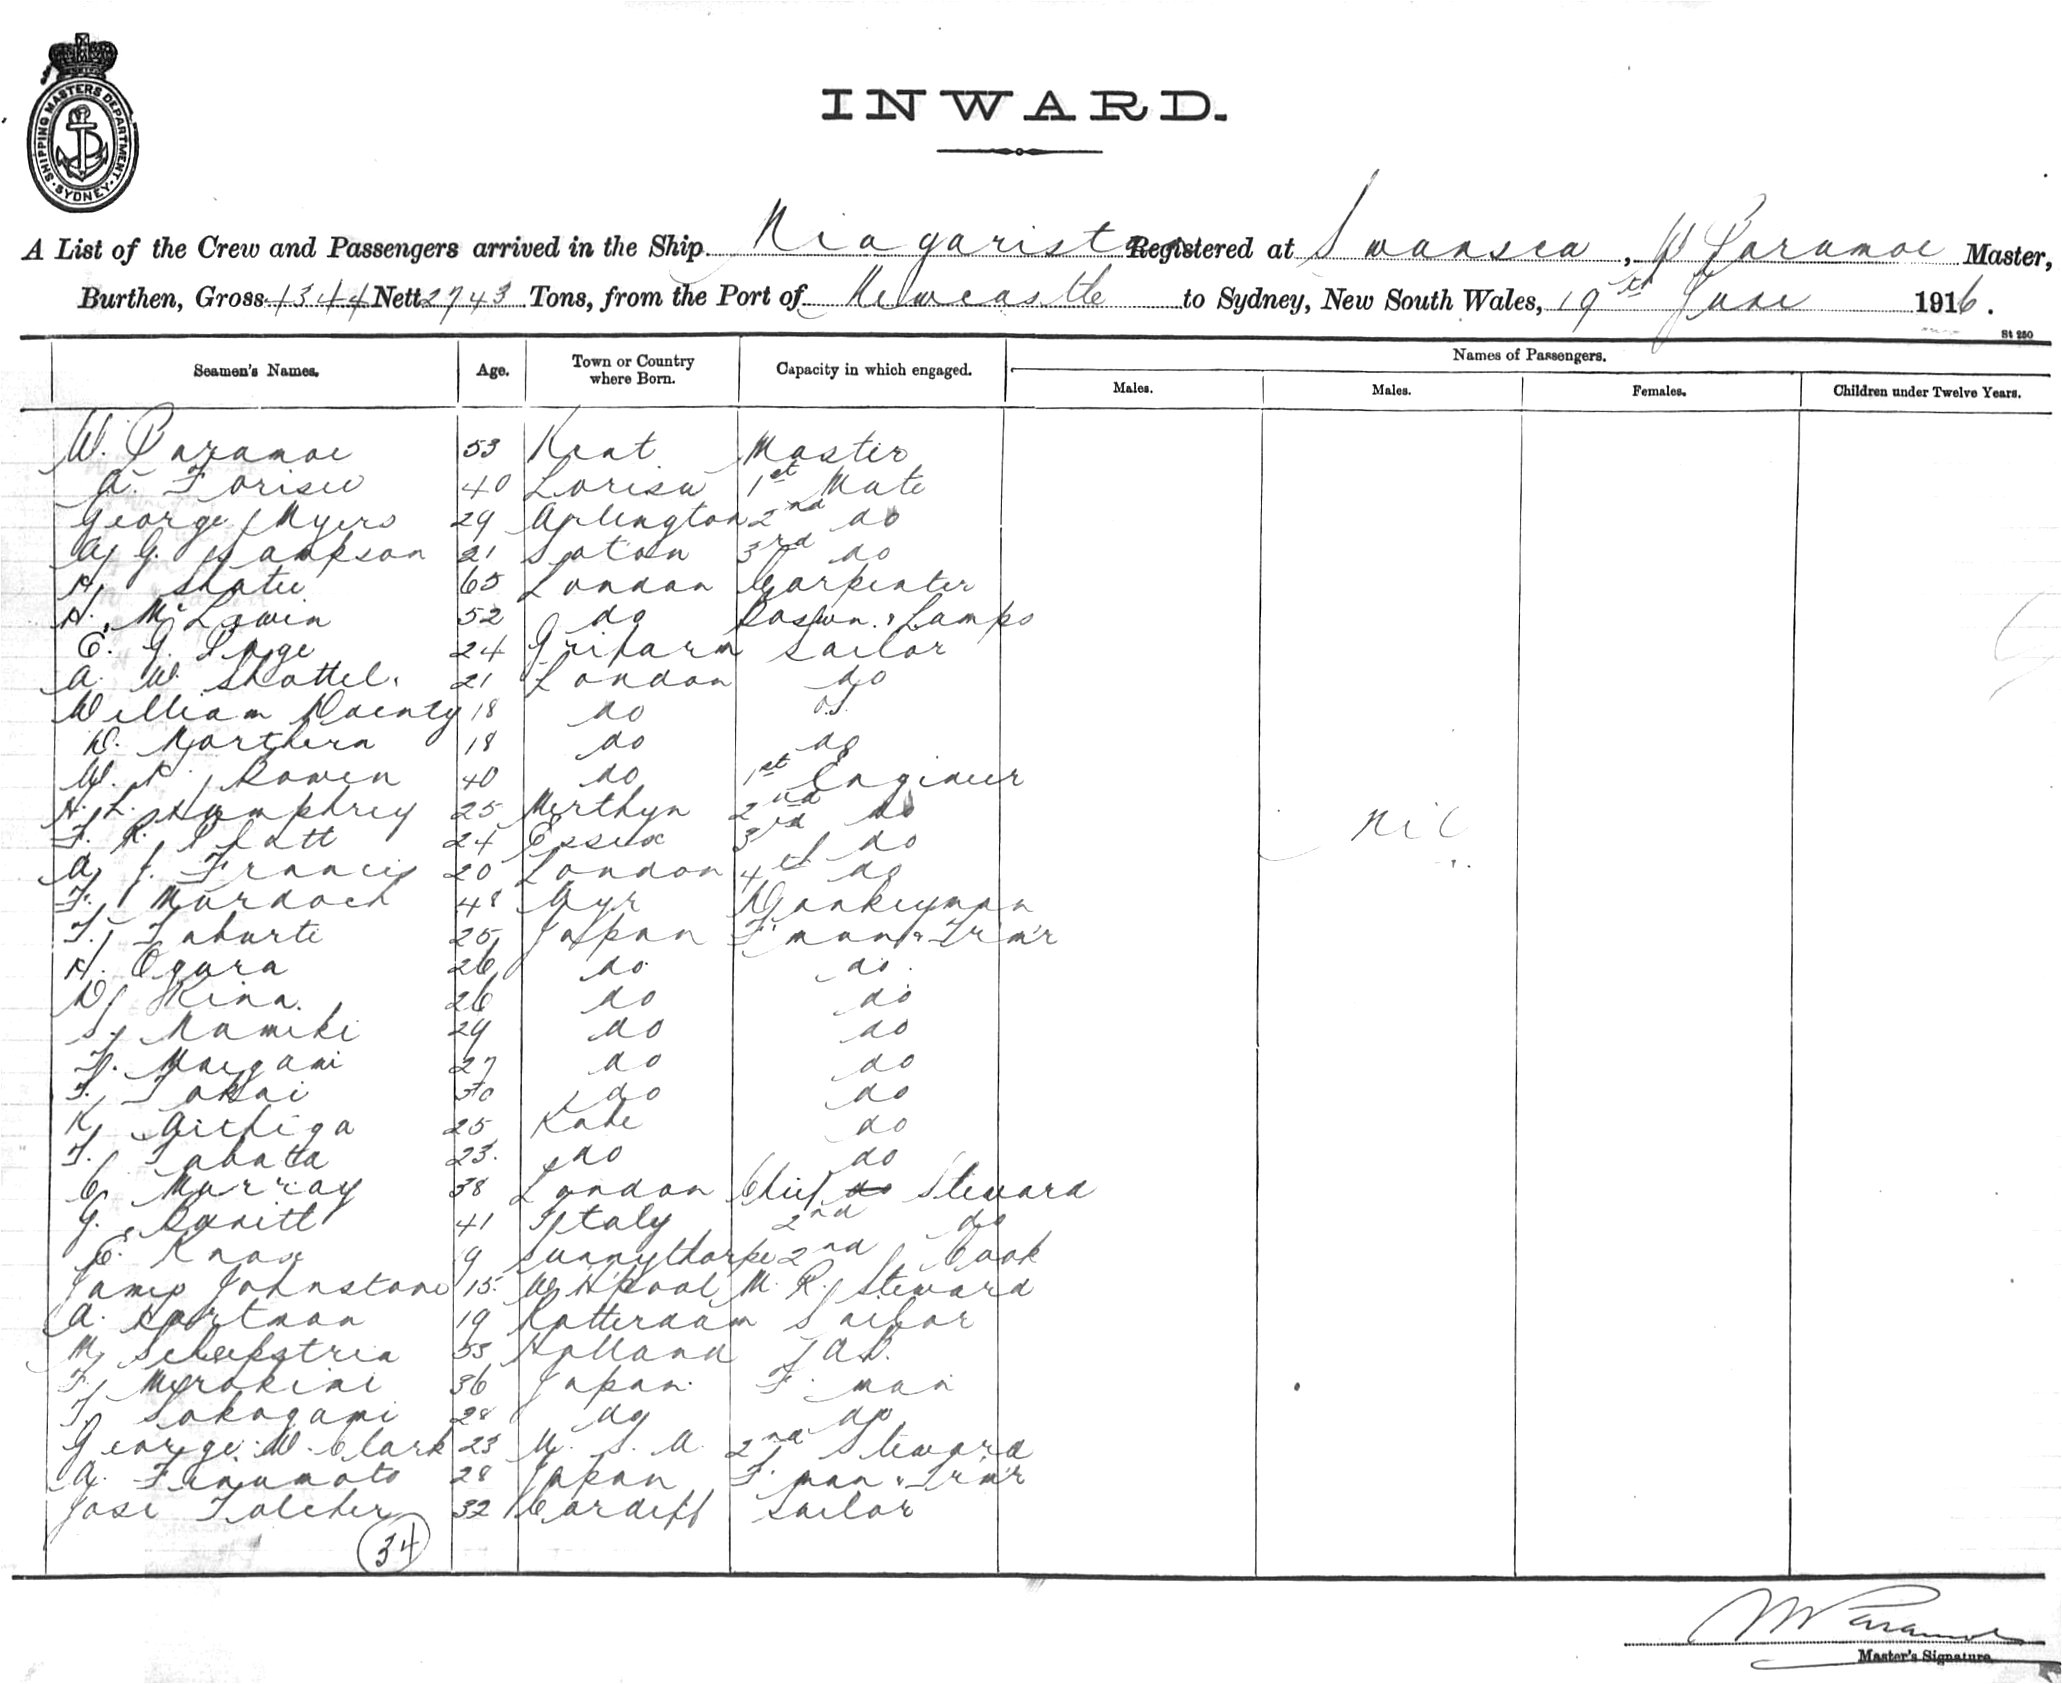 SHIPPING MASTERS DEPARTMENT
SYDNEY
INWARD.
A List of the Crew and Passengers arrived in the Ship Niagarista Registered at Swansea, W Paramoe Master,
Burthen, Gross 4344 Nett 2743 Tons, from the Port of Newcastle to Sydney, New South Wales, 19th June 1916.
St 280
Seamen's Names. Age. Town or Country where Born. Capacity in which engaged. Names of Passengers.
Males. Males. Females. Children under Twelve Years.
W. Paramoe 53 Kent Master
A. 40 1st Mate
George Myers 29 Arlington 2nd do
A G. Sampson 21 Soton 3rd do
H 65 London Carpenter
H. McLewin 52 do Boswn. & Lamps
E. G. Page 24 Sailor
A. W. Shottel. 21 London do
William Dainty 18 do O.S.
W. Northern 18 do do
W. K. Bowen 40 do 1st Engineer
H. L. Humphrey 25 Merthyn 2nd do
F. R. Platt 24 Essex 3rd do
A J. Francis 20 London 4th do
F. Murdoch 48 Ayr Donkeyman
T. 25 Japan F'man & Trim'r
H. Ogura 26 do do
D Kina. 26 do do
S. Namiki 29 do do
T. 27 do do
T. Takai 30 do do
K 25 Kobe do
T. Tabata 23. do do
C Murray 38 London Chief do Steward
G. 41 Italy 2nd do
E. Knox 19 Sunnythorpe 2nd Cook
James Johnstone 15. W H'pool M. R. Steward
A. Hartman 19 Rotterdam Sailor
M 53 Holland A.B.
F. 36 Japan. F. man
T. Sakagami 28 do do
George W. Clark 23 U. S. A. 2nd Steward
A. 28 Japan F. man & Trim'r
Jose 32 Cardiff Sailor
34
Nil
W Paramoe
Master's Signature.